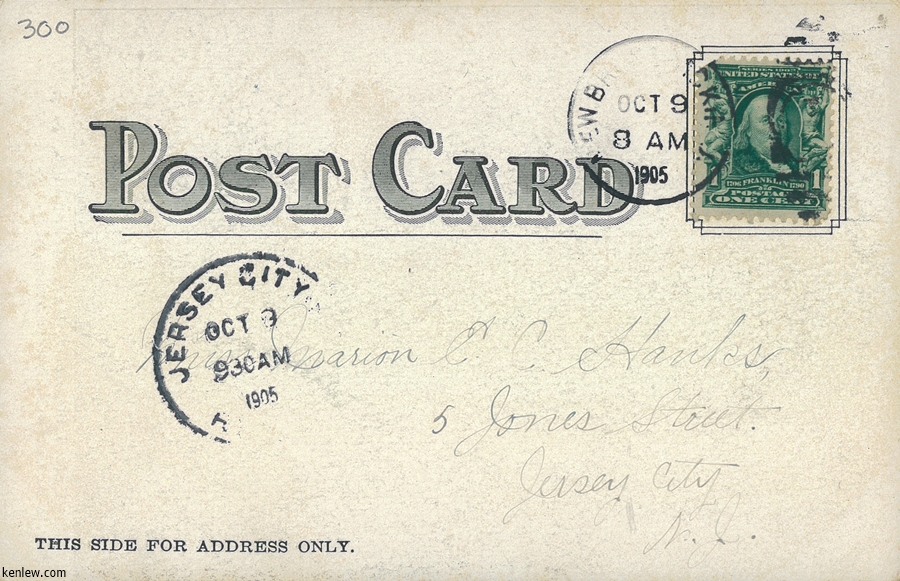 300
SERIES 1902
UNITED STATES OF
AMERICA
OCT 9
8 AM
1905
1706 FRANKLIN 1790
1 1
POSTAGE
ONE CENT
POST CARD
JERSEY CITY
OCT 9
930AM
1905
Miss Marion E. C. Hawks,
5 Jones Street.
Jersey City
N. J.
THIS SIDE FOR ADDRESS ONLY.
kenlew.com